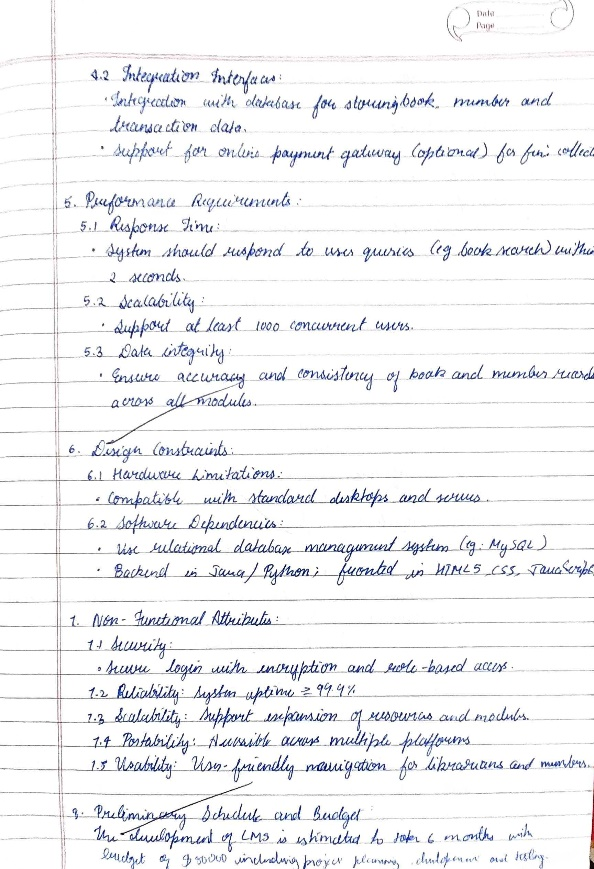 Date
Page
4.2 Integration Interfaces:
• Integration with database for storing book, member and
transaction data.
• Support for online payment gateway (optional) for fine collect
5. Performance Requirements:
5.1 Response Time:
• System should respond to user queries (eg book search) within
2 seconds.
5.2 Scalability:
• Support at least 1000 concurrent users.
5.3 Data integrity:
• Ensure accuracy and consistency of book and member records
across all modules.
6. Design Constraints:
6.1 Hardware Limitations:
• Compatible with standard desktops and servers.
6.2 Software Dependencies:
• Use relational database management system (eg: MySQL)
• Backend in Java/Python; fronted in HTML5, CSS, JavaScript
7. Non-Functional Attributes:
7.1 Security:
• Secure login with encryption and role-based access.
7.2 Reliability: System uptime ≥ 99.9%
7.3 Scalability: Support expansion of resources and modules.
7.4 Portability: Accessible across multiple platforms
7.5 Usability: User-friendly navigation for librarians and members.
8. Preliminary Schedule and Budget:
The development of LMS is estimated to take 6 months with
budget of including project planning, development and testing.